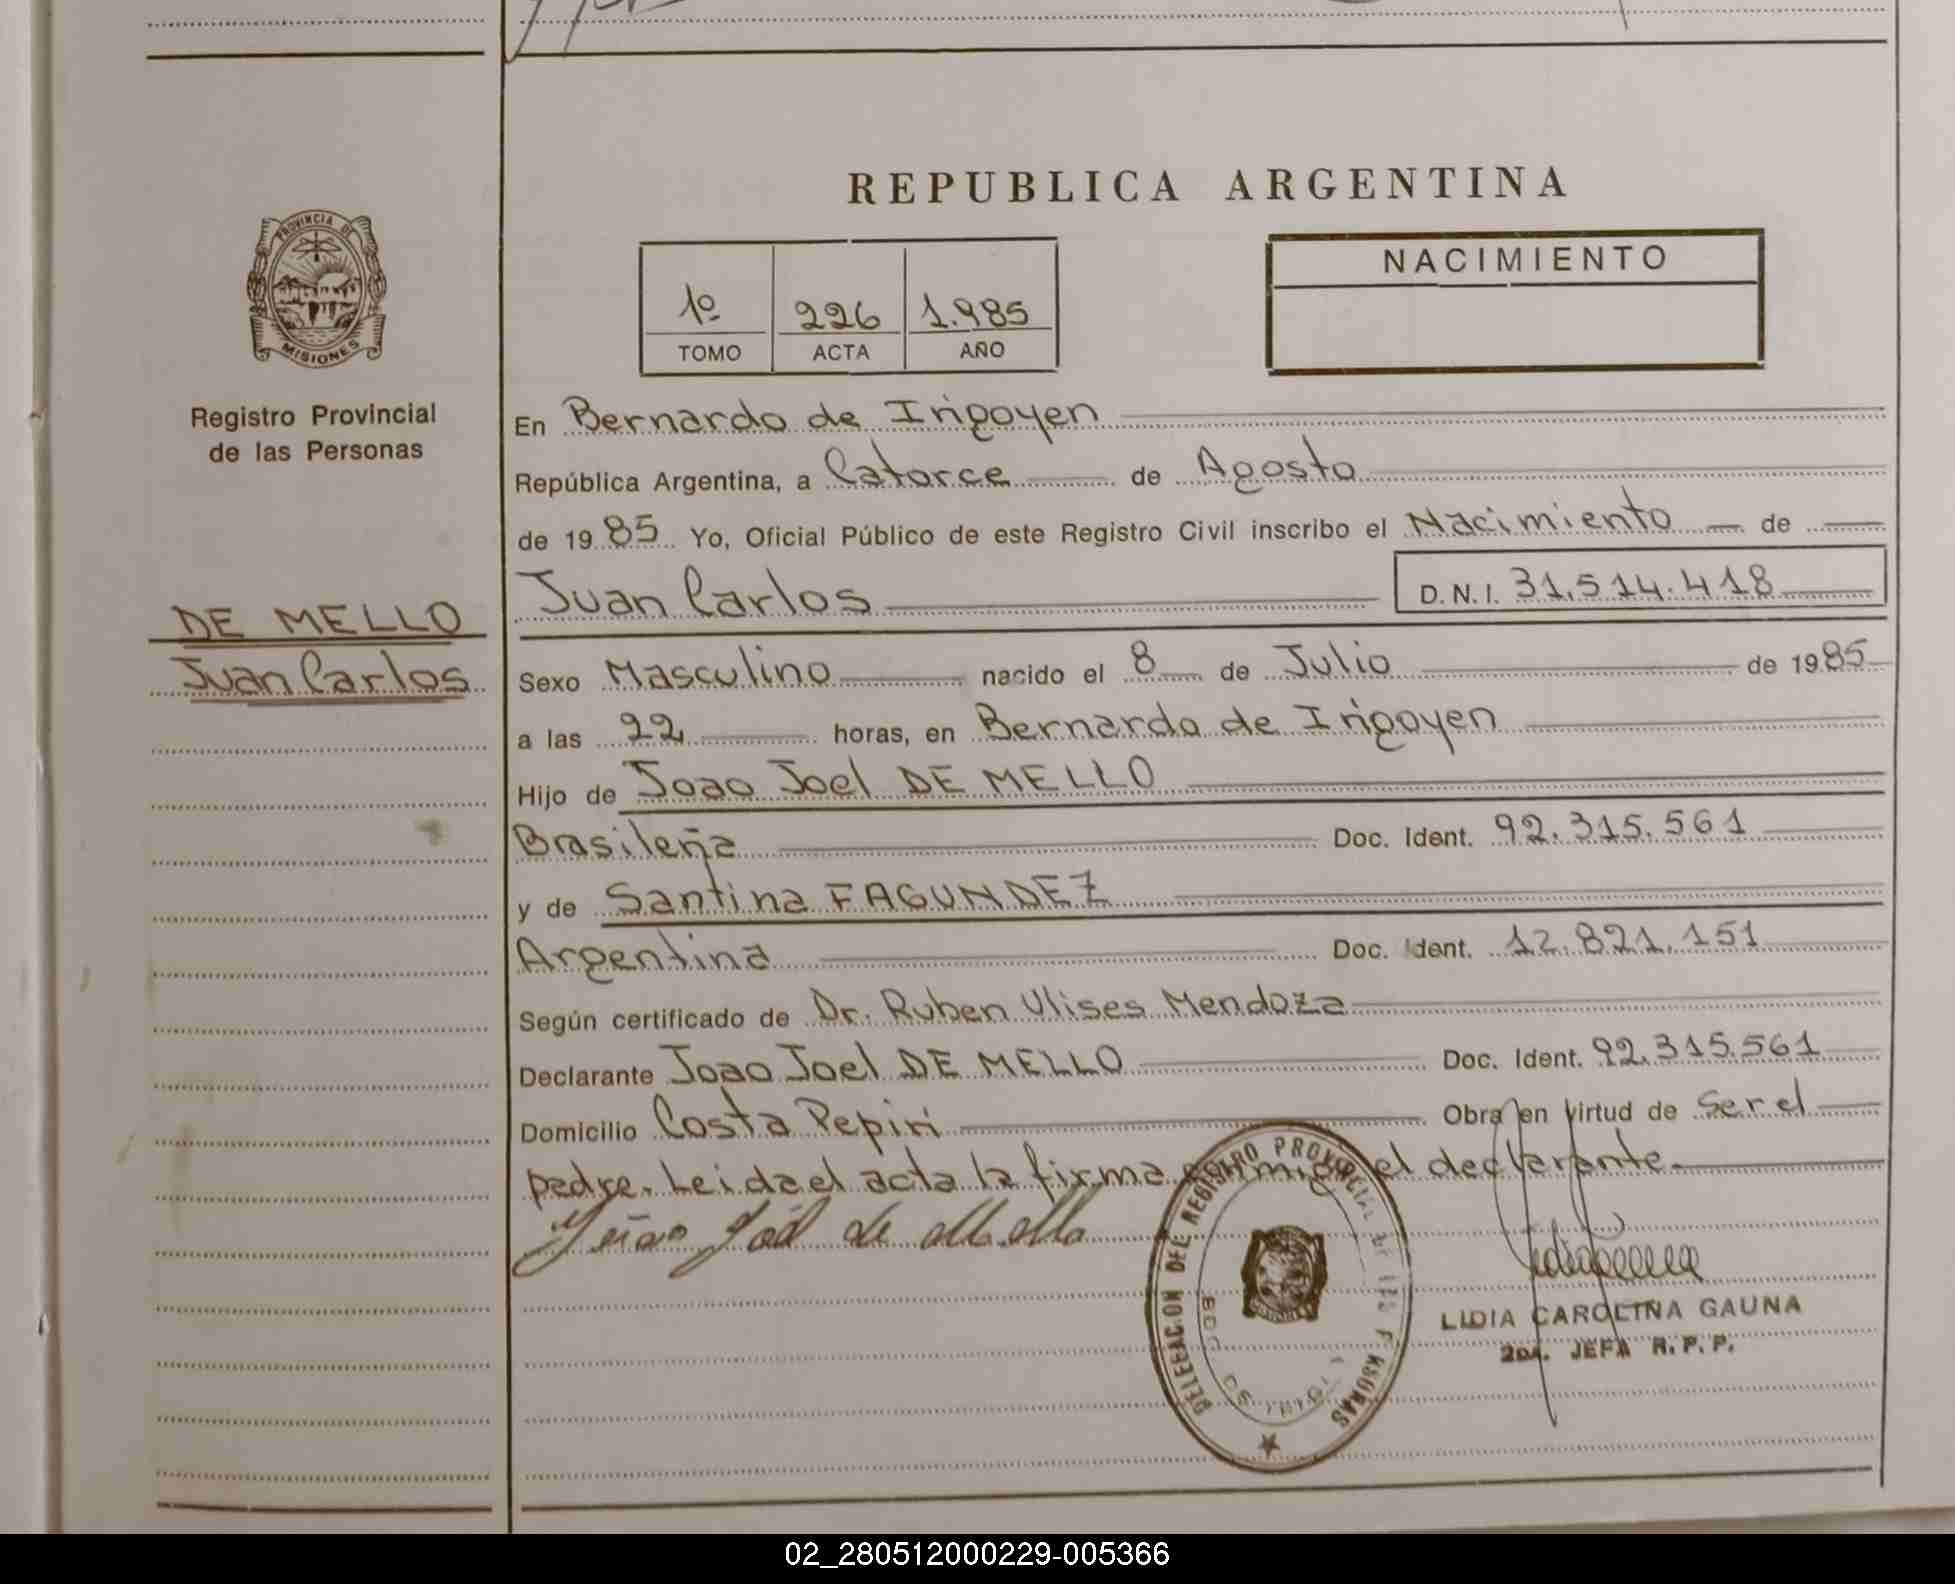 REPUBLICA ARGENTINA
PROVINCIA DE
MISIONES
Registro Provincial
de las Personas
1º 226 1.985
TOMO ACTA AÑO
NACIMIENTO
En Bernardo de Irigoyen
República Argentina, a Catorce de Agosto
de 1985 Yo, Oficial Público de este Registro Civil inscribo el Nacimiento de
Juan Carlos D.N.I. 31.514.418
DE MELLO
Juan Carlos
Sexo Masculino nacido el 8 de Julio de 1985
a las 22 horas, en Bernardo de Irigoyen
Hijo de Joao Joel DE MELLO
Brasileña Doc. Ident. 92.315.561
y de Santina FAGUNDEZ
Argentina Doc. Ident. 12.821.151
Según certificado de Dr. Ruben Ulises Mendoza
Declarante Joao Joel DE MELLO Doc. Ident. 92.315.561
Domicilio Costa Pepiri Obra en virtud de Ser el
padre. Leida el acta la firma conmigo el declarante.
DELEGACION DEL REGISTRO PROVINCIAL DE LAS PERSONAS
LIDIA CAROLINA GAUNA
2da. JEFA R.P.P.
02_280512000229-005366